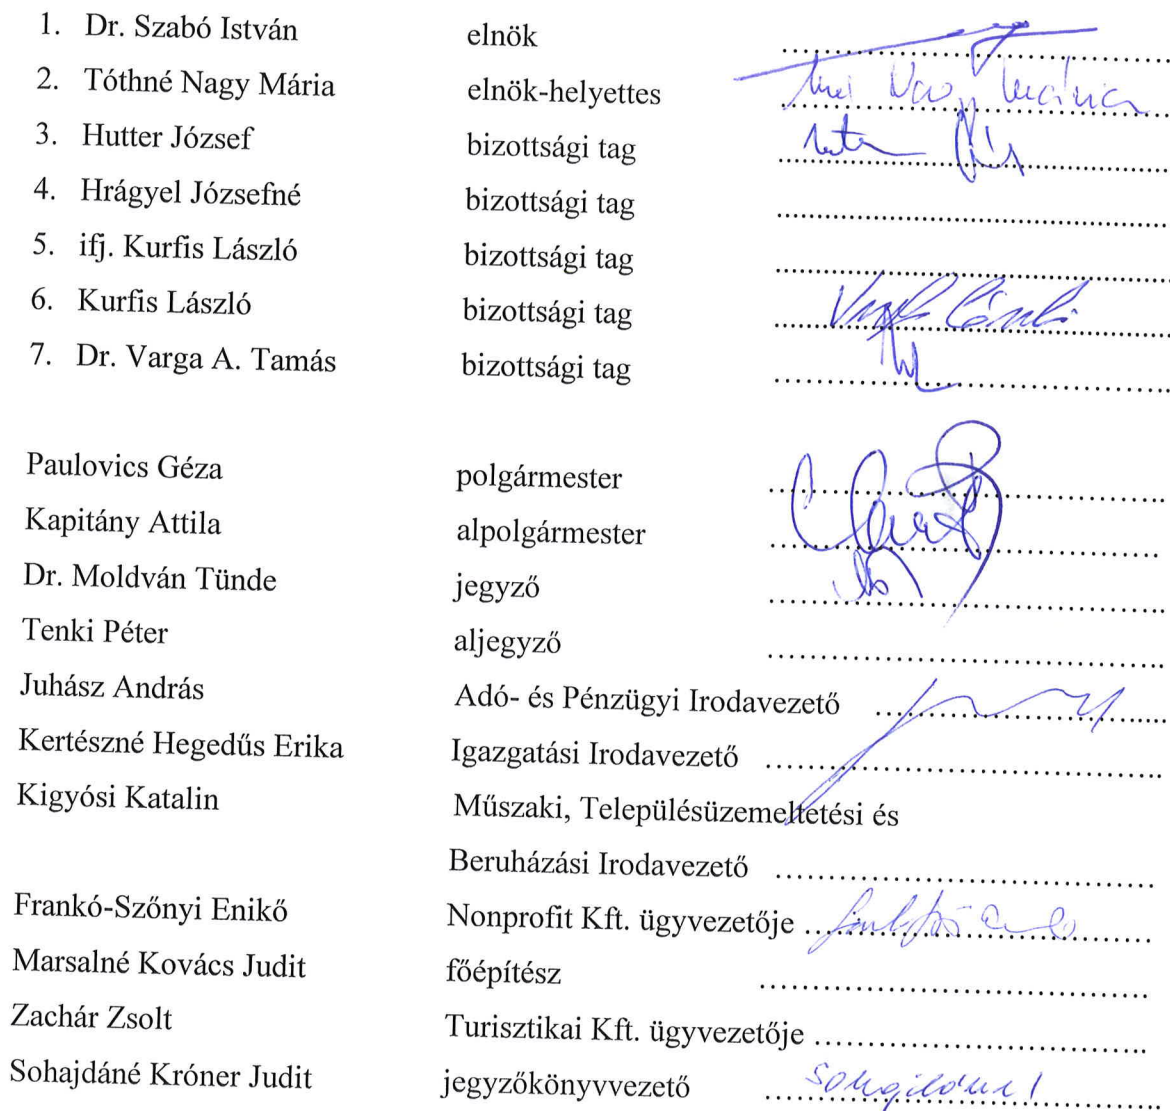 1. Dr. Szabó István elnök
2. Tóthné Nagy Mária elnök-helyettes Tné Nagy Mária
3. Hutter József bizottsági tag
4. Hrágyel Józsefné bizottsági tag
5. ifj. Kurfis László bizottsági tag
6. Kurfis László bizottsági tag
7. Dr. Varga A. Tamás bizottsági tag
Paulovics Géza polgármester
Kapitány Attila alpolgármester
Dr. Moldván Tünde jegyző
Tenki Péter aljegyző
Juhász András Adó- és Pénzügyi Irodavezető
Kertészné Hegedűs Erika Igazgatási Irodavezető
Kigyósi Katalin Műszaki, Településüzemeltetési és
Beruházási Irodavezető
Frankó-Szőnyi Enikő Nonprofit Kft. ügyvezetője
Marsalné Kovács Judit főépítész
Zachár Zsolt Turisztikai Kft. ügyvezetője
Sohajdáné Króner Judit jegyzőkönyvvezető